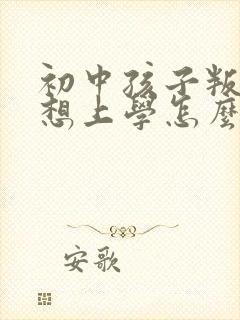 初中孩子叛
想上學怎麼
安歌